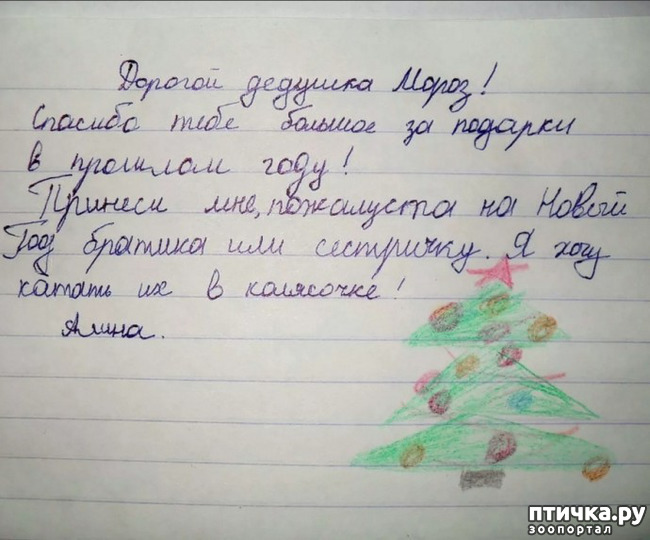 Дорогой дедушка Мороз!
Спасибо тебе большое за подарки
в прошлом году!
Принеси мне, пожалуста на Новый
Год братика или сестричку. Я хочу
катать их в колясочке!
Алина.
птичка.ру
зоопортал